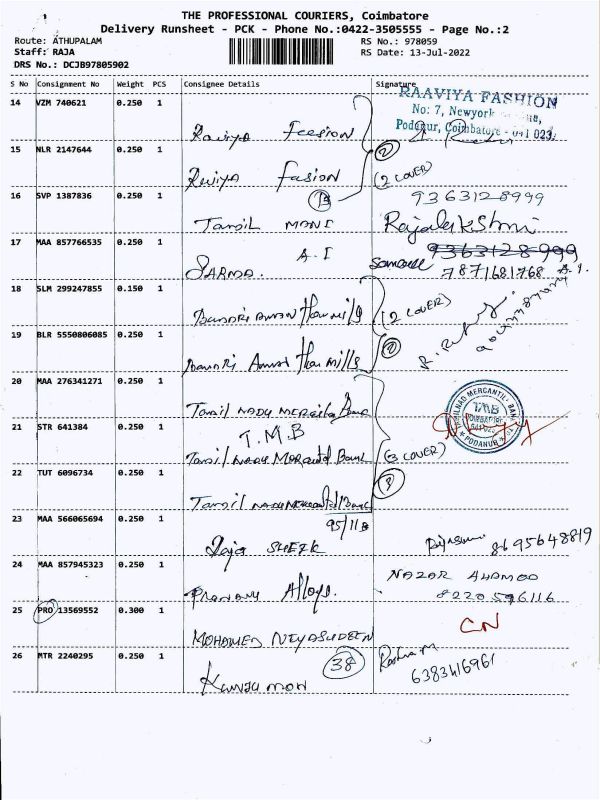 THE PROFESSIONAL COURIERS, Coimbatore
Delivery Runsheet - PCK - Phone No.:0422-3505555 - Page No.:2
Route: ATHUPALAM RS No.: 978059
Staff: RAJA RS Date: 13-Jul-2022
DRS No.: DCJB97805902
S No Consignment No Weight PCS Consignee Details Signature
RAAVIYA FASHION
No: 7, Newyork
Podanur, Coimbatore - 641 023.
14 VZM 740621 0.250 1
15 NLR 2147644 0.250 1
Raviya Fasion
(2 COVER)
16 SVP 1387836 0.250 1
9363128999
Tamil MANI Rajalakshmi
17 MAA 857766535 0.250 1
A.I
SARMA. 7871681768
18 SLM 299247855 0.150 1
(2 COVER)
19 BLR 5550806085 0.250 1
20 MAA 276341271 0.250 1
Tamil NADU
TAMILNAD MERCANTILE BANK
TMB
PODANUR
21 STR 641384 0.250 1
T.M.B
Tamil NADU
(3 COVER)
22 TUT 6096734 0.250 1
Tamil
95/11B
23 MAA 566065694 0.250 1
Raja 8695648819
24 MAA 857945323 0.250 1
NAZAR AHAMED
Pranav Alloys. 8220596116
25 PRO 13569552 0.300 1
CN
MOHAMED NIYASUDEEN
26 MTR 2240295 0.250 1
38
6383416961